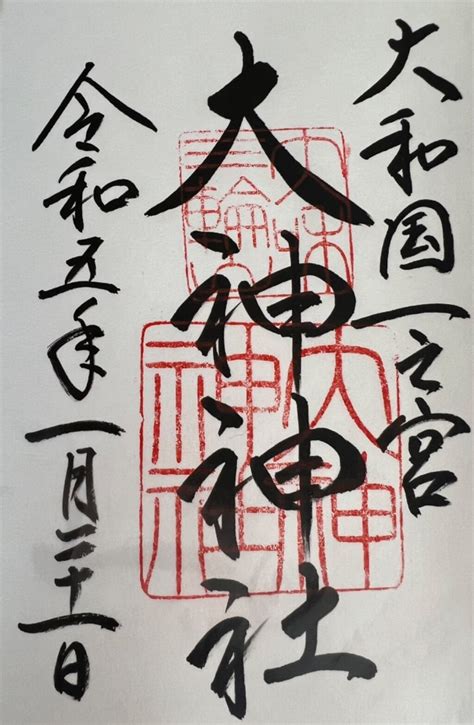 大和国一之宮
大神神社
令和五年一月二十一日
大神神社